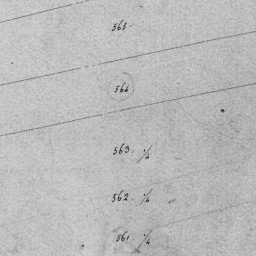 565.
564
563. 1/2
562. 1/2
561. 1/2